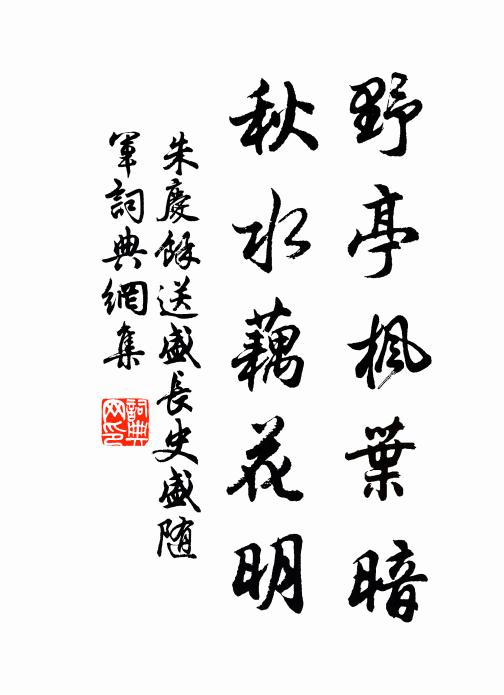 野亭楓葉暗
秋水藕花明
朱慶餘送盛長史盛随
軍詞典網集
詞典網印